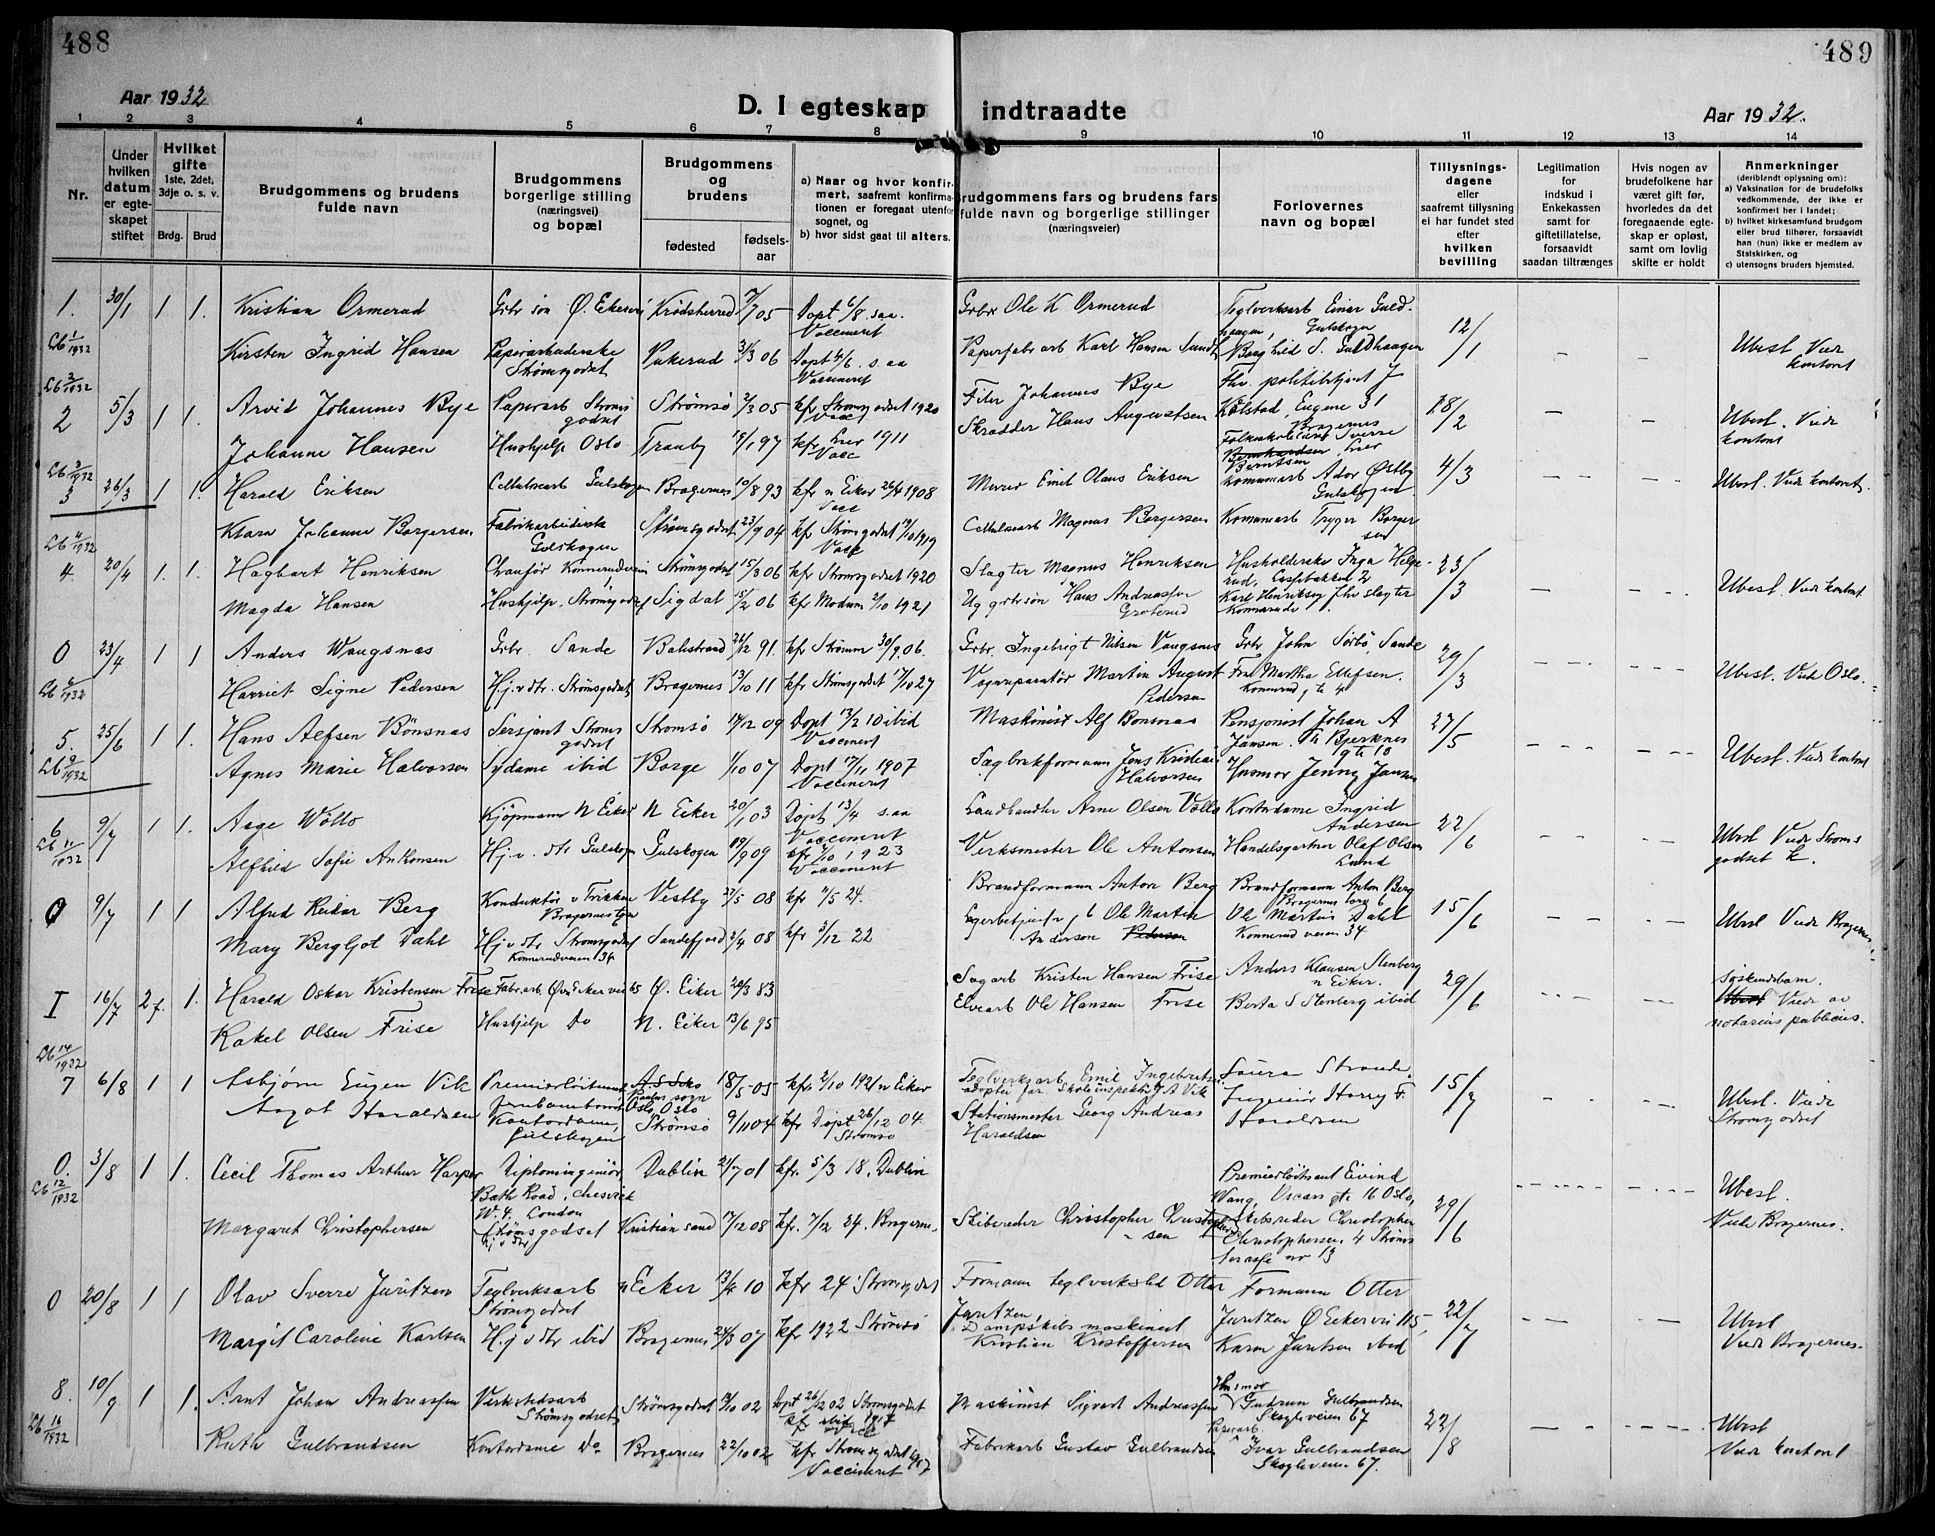 488
489
Aar 1932
D. I egteskap indtraadte
Aar 1932.
1 2 3 4 5 6 7 8 9 10 11 12 13 14
Nr.
Under hvilken datum er egteskapet stiftet
Hvilket gifte
1ste, 2det, 3dje o. s. v.
Brdg. Brud
Brudgommens og brudens fulde navn
Brudgommens borgerlige stilling (næringsvei) og bopæl
Brudgommens og brudens
fødested
fødselsaar
a) Naar og hvor konfirmert, saafremt konfirmationen er foregaat utenfor sognet, og
b) hvor sidst gaat til alters.
Brudgommens fars og brudens fars fulde navn og borgerlige stillinger (næringsveier)
Forlovernes navn og bopæl
Tillysningsdagene eller saafremt tillysning ei har fundet sted efter hvilken bevilling
Legitimation for indskud i Enkekassen samt for giftetillatelse, forsaavidt saadan tiltrænges
Hvis nogen av brudefolkene har været gift før, hvorledes da det foregaaende egteskap er opløst, samt om lovlig skifte er holdt
Anmerkninger
(deriblandt oplysning om):
a) Vaksination for de brudefolks vedkommende, der ikke er konfirmert her i landet;
b) hvilket kirkesamfund brudgom eller brud tilhører, forsaavidt han (hun) ikke er medlem av Statskirken, og
c) utensogns bruders hjemsted.
1. 30/1 1 1. Kristian Ormerud Grbr søn Ø. Eikervei Krødsherred 7/7 05 Døpt 6/8 s.aa. Vaccineret Grbr Ole K Ormerud Teglverksarb Einar Guldhaagen, Gulskogen 12/1
Lb 1/1932
Kirsten Ingrid Hansen Papirarbeiderske Strømsgodset Pukerud 31/3 06 Døpt 4/6 s. aa Vaccineret Papirfabarb Karl Hansen Sundt Borghild S. Guldhaagen – – Ubest Viedr kontoret
Lb 2/1932
2 5/3 1 1. Arvid Johannes Bye Papirarb Strømsgodset Strømsø 2/3 05 kf Strømsgodset 1920 Vacc Filer Johannes Bye Fhv. politibetjent J Kolstad, Eugene 31 Bragernes 18/2 – –
Johanne Hansen Hushjelp Oslo Tranby 19/1 97 kfr Lier 1911 Vacc Skrædder Hans Augustsen Folkeskolelærer Sverre Berntsen, Lier Ubest. Viedr kontoret
Lb 3/1932
3 26/3 1 1. Harald Eriksen Cellulosearb Gulskogen Bragernes 10/8 93 kfr n Eiker 26/4 1908 Vacc Murer Emil Olaus Eriksen Kommunearb Ador Østby Gulskogen 4/3 Ubest. Viedr kontoret.
Klara Johanne Borgersen Fabrikarbeiderske Gulskogen Strømsgodset 23/9 04 kf Strømsgodset 19/10 1919 Vacc Cellulosearb Magnus Borgersen Kommunearb Trygve Borgersen
Lb 4/1932
4 20/4 1. 1. Hagbart Henriksen Chauffør Konnerudveien Strømsgodset 15/3 06 kfr Strømsgodset 1920 Slagter Magnus Henriksen Husholderske Inga Helgerud, 23/3
Magda Hansen Hushjelp, Strømsgodset Sigdal 15/2 06 kfr Modum 2/10 1921 Hans Andreassen Grøterud Karl Henriksen fhv slagter Konnerudg – – Ubest. Viedr kontoret
0 23/4 1 1 Anders Wangsnæs Grbr. Sande Balestrand 26/12 91. kfr Strømm 30/9 06. Grbr. Ingebrigt Nilsen Vangsnes Grbr John Sørbø, Sande 29/3
Harriet Signe Pedersen Hj.v.dtr. Strømsgodset Bragernes 13/10 11 kfr Strømsgodset 17/10 27 Vognreparatør Martin August Pedersen Fru Martha Ellefsen. Konnerudgt 4 Ubest. Viedr Oslo.
5. 25/6 1 1. Hans Alfsen Bönsnæs Sersjant Strømsgodset Strømsø 14/12 09 Døpt 13/2 10 ibid Vaccineret Maskinist Alf Bönsnæs Pensjonist Johan A Jansen, Th Bjerknes gt 10 27/5
Agnes Marie Halvorsen Sydame ibid Borge 1/10 07 Døpt 17/11 1907 Vaccineret Sagbruksformann Jens Kristian Halvorsen Husmor Jenny Jansen Ubest. Viedr kontoret
6 9/7 1 1. Aage Wölls Kjøpmann N Eiker N Eiker 20/1 03 Døpt 13/4 s.aa Vaccineret Landhandler Arne Olsen Völls Kontordame Ingrid Andersen 22/6
Lb 11/1932
Alfhild Sofie Antonsen Hj.v.dtr Gulskogen Gulskogen 19/9 09 kfr 7/10 1923 Vaccineret Verksmester Ole Antonsen Handelsgartner Olaf Olsen Lund Ubest Viedr Strømsgodset k.
0 9/7 1 1 Alfred Reidar Berg Konduktør v Trikken Bragernes Vestby 27/5 08 kfr 11/5 24. Brandformann Anton Berg Brandformann Anton Berg Bragernes torg 6 15/6
Mary Bergljot Dahl Hj v dtr Strømsgodset Konnerudveien 34 Sandefjord 2/4 08 kfr 3/12 22 Ole Martin Anderson Pedersen Ole Martin Dahl Konnerudveien 34 Ubest Viedr Bragernes.
I 16/7 2 f. 1. Harald Oskar Kristensen Frise Fabr.arb. Øvre Eikervei 65 Ø. Eiker 20/3 83 Sagarb Kristen Hansen Frise Anders Klausen Stenberg n Eiker. 29/6 Søskendebarn.
Rakel Olsen Frise Hushjelp Do N. Eiker 13/6 95 Elvearb Ole Hansen Frise Berta S Stenberg ibid Ubest Viedr av notarius publicus.
Lb 14/1932
7 6/8 1 1 Asbjørn Eugen Vik Premierløitnant 18/5 05 kfr 2/10 1921 n Eiker Teglverksarb Emil Ingebretsen adoptivfar Skoleinspektør A Vik Laura Strande 15/7
Aagot Haraldsen Kontordame, Gulskogen Strømsø 9/11 04 kfr Døpt 26/12 04. Strømsø Stationsmester Georg Andreas Haraldsen Ingeniør Harry F. Haraldsen Ubest. Viedr Strømsgodset
0. 3/8 1 1. Cecil Thomas Arthur Harper Diplomingeniør, Bath Road, Chiswick W.4. London Dublin 21/7 01 kfr. 5/3 18. Dublin Premierløitnant Eivind Wang, Oscars gt. 16 Oslo, 29/6 Ubest.
Lb 12/1932
Margaret Christophersen Strømsgodset hj v dtr Kristiansand 17/12 08 kfr. 7/12 24. Bragernes. Skibsreder Christopher Christophersen Skibsreder Christopher Christophersen. 4 Strømsterasse nr 13 Viedr Bragernes.
0 20/8 1 1 Olav Sverre Juritzen Teglverksarb Strømsgodset n Eiker 13/4 10 kfr 24 Strømsgodset Formann teglverksarb Otter Juritzen, Formann Otter Juritzen Ø Eikervei 115, 22/7 Ubest
Margit Caroline Karlsen Hj v dtr ibid Bragernes 24/3 07 kfr 1922 Strømsø Dampskibsmaskinist Kristian Kristoffersen Karen Juritzen ibid Viedr Bragernes.
8. 10/9 1 1. Arnt Johan Andreassen Verkstedsarb Strømsgodset Strømsgodset 13/10 02 Døpt 26/12 02 Strømsgodset kf ibid 1917 Maskinist Sigvart Andreassen Husmor Gudrun Gulbrandsen Skogliveien 67 22/8 Ubest
Lb 16/1932
Ruth Gulbrandsen Kontordame Do Bragernes 22/10 02 kfr Strømsgodset 1917 Vaccineret Fabrikarb Gustav Gulbrandsen Papirarb. Ivar Gulbrandsen Skogliveien 67. Viedr kontoret